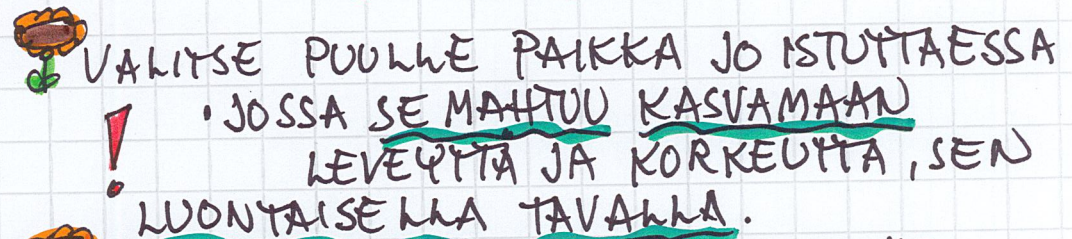 VALITSE PUULLE PAIKKA JO ISTUTTAESSA
! • JOSSA SE MAHTUU KASVAMAAN
LEVEYTTÄ JA KORKEUTTA, SEN
LUONTAISELLA TAVALLA.